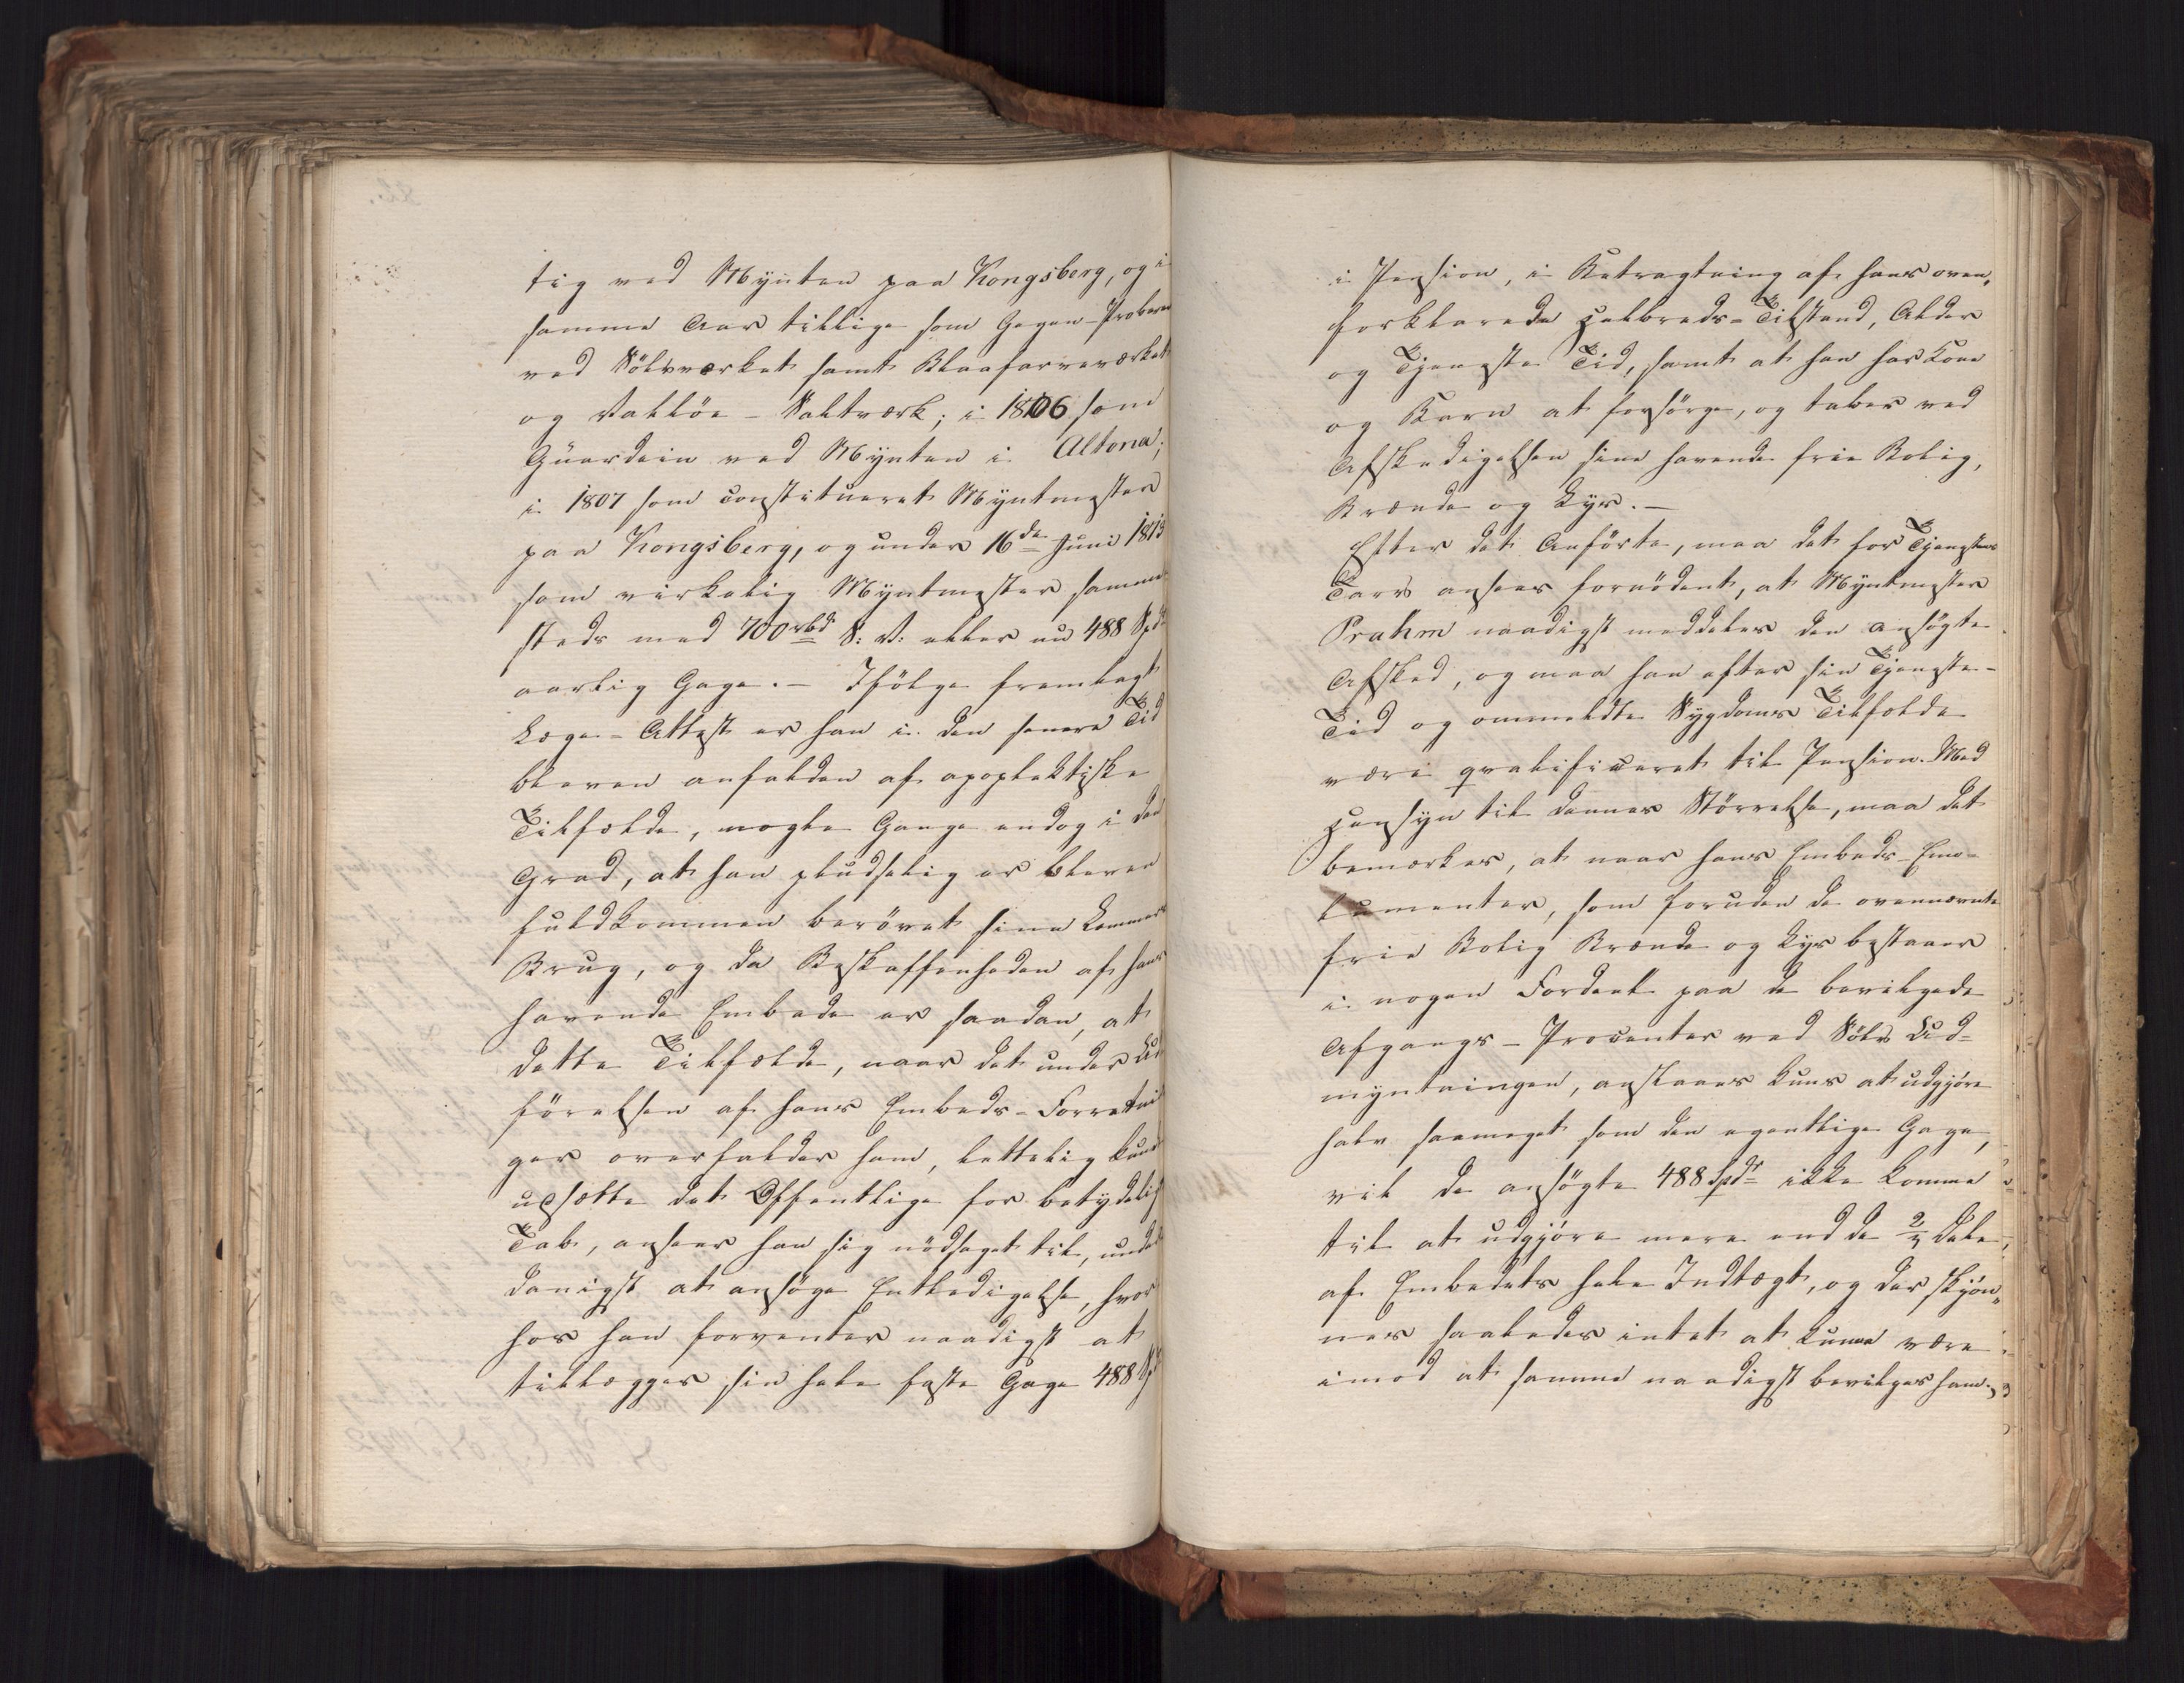 tig ved Mynten paa Kongsberg, og i
samme Aar tillige som Gegen-Proberer
ved Sölvværket samt Blaafarveværket
og Valløe-Saltværk; i 1806 som
Guardein ved Mynten i Altona;
i 1807 som constitueret Myntmester
paa Kongsberg, og under 16de Juni 1813
som virkelig Myntmester samme-
steds med 700 rbd S: V: eller nu 488 Spd
aarlig Gage.- Ifölge fremlagt
Læge-Attest er han i den senere Tid
bleven anfalden af apoplektiske
Tilfælde, nogle Gange endog i den
Grad, at han pludselig er bleven
fuldkommen berövet sine Lemmers
Brug, og da Beskaffenheden af hans
havende Embede er saadan, at
dette Tilfælde, naar det under Ud-
förelsen af hans Embeds-Forretnin
ger overfalder ham, lettelig kund
udsætte det Offentlige for betydelig
Tab, anseer han sig nödsaget til, under
danigst at ansöge Entledigelse, hvor
hos han forventer naadigst at
tillægges sin hele faste Gage 488 Spd
i Pension, i Betragtning af hans oven„
forklarede Helbreds-Tilstand, Alder
og Tjeneste Tid, samt at han har Kone
og Børn at forsörge, og taber ved
Afskedigelsen sine havende frie Bolig,
Brænde og Lys.-
Efter det Anförte, maa det for Tjenestens
Tarv ansees fornödent, at Myntmester
Prahm naadigst meddeles den ansögte
Afsked, og maa han efter sin Tjeneste-
Tid og ommeldte Sygdoms Tilfælde
være qvalificeret til Pension. Med
Hensyn til dennes Störrelse, maa det
bemærkes, at naar hans Embeds-Emo-
lumenter, som foruden de ovennævnte
frie Bolig Brænde og Lys bestaaer
i nogen Fordeel paa de bevilgede
Afgangs-Procenter ved Sölv Ud-
myntningen, anslaaes kuns at udgjöre
halv saameget som den egentlige Gage,
vil de ansögte 488 Spdr ikke komme
til at udgjöre mere end de 2/3 Dele
af Embedets hele Indtægt, og der skjön„
nes saaledes intet at kunne være
imod at samme naadigst bevilges ham.